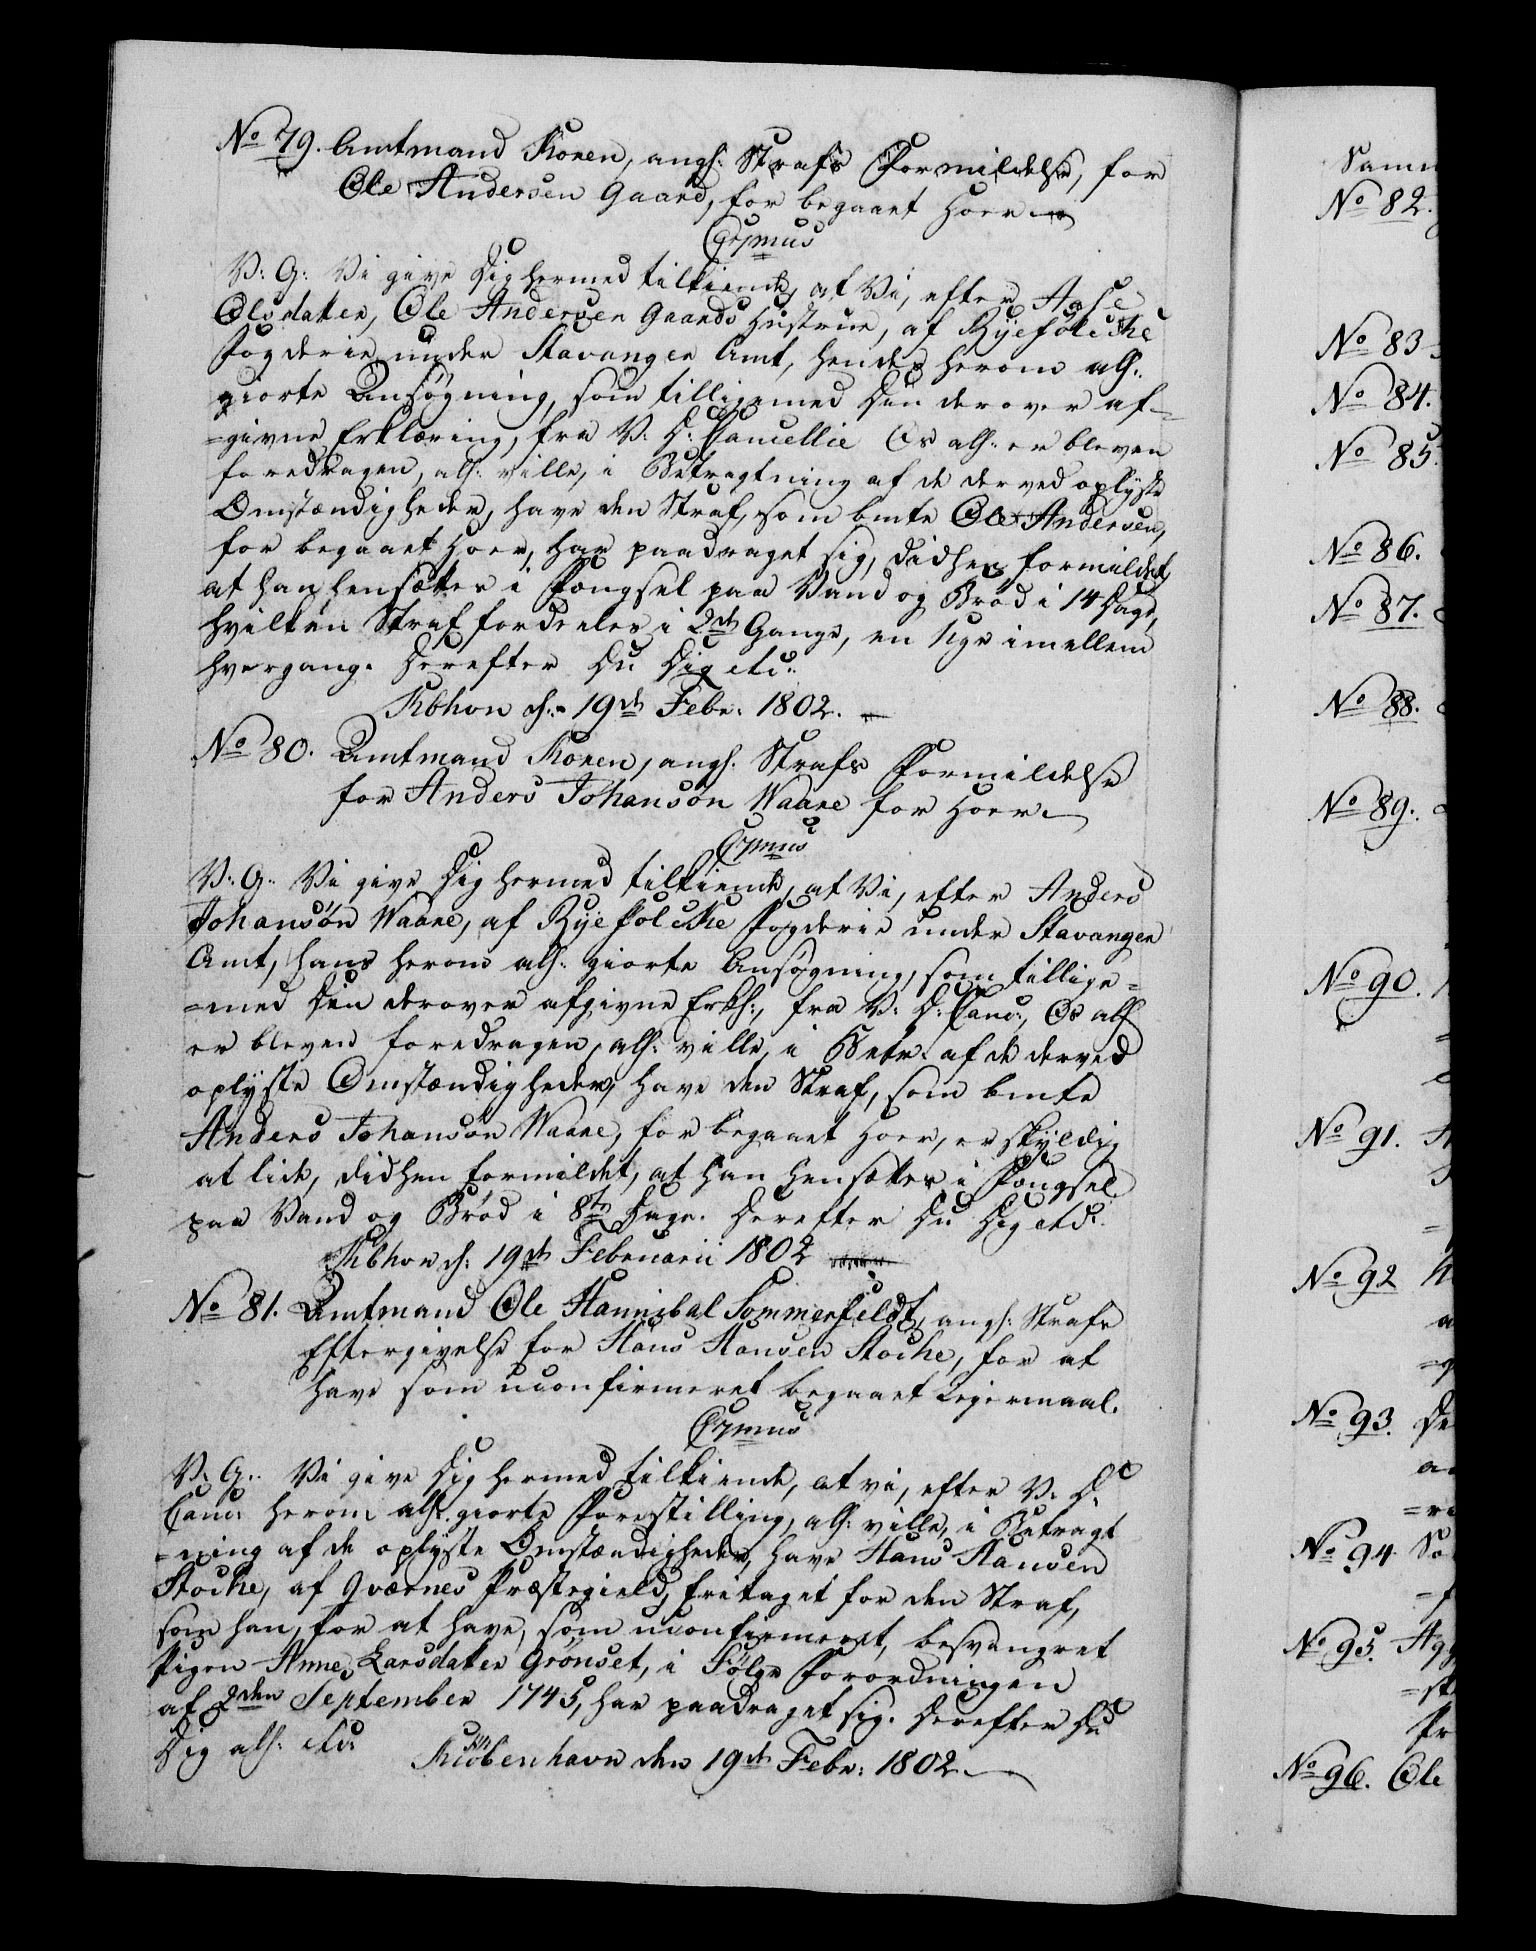 No 79. Amtmand Koren, angs. Strafs Formildelse, for
Ole Andersen Gaard, for begaaet Hoer
Chr: 7mus
V: G: Vi give Dig hermed tilkiende, at Vi, efter Aase
Olsdatter, Ole Andersen Gaards Hustrue, af Ryefölcke
Fogderie under Stavanger Amt, hendes herom alh:
giorte Ansøgning, som tilligemed Din derover af-
=givne Erklæring, fra V: D: Cancellie Os alh: er bleven
foredragen, alh: ville, i Betragtning af de derved oplyste
Omstændigheder, have den Straf, som bmte Ole Andersen,
for begaaet Hoer, har paadraget sig, didhen formildet,
at han hensættes i Fængsel paa Vand og Brød i 14 Dage,
hvilken Straf fordeeles i 2de Gange, en Uge imellem
hvergang. Derefter Du Dig etc:
Kbhvn d: 19de Febr: 1802.
No 80. Amtmand Koren, angs. Strafs Formildelse
for Anders Johansøn Waare for Hoer
C7mus
V: G: Vi give Dig hermed tilkiende, at Vi, efter Anders
Johansøn Waare, af Ryefolcke Fogderie under Stavanger
Amt, hans herom alh: giorte Ansøgning, som tillige=
=med Din derover afgivne Erkl:, fra V: D: Canc:, Os alh
er bleven foredragen, alh: ville, i Betr: af de derved
oplyste Omstændigheder, have den Straf, som bmte
Anders Johansøn Waare, for begaaet Hoer, er skyldig
at lide, didhen formildet, at han hensættes i Fængsel
paa Vand og Brød i 8te Dage. Derefter Du Dig etc:
Kbhvn d: 19de Februarii 1802
No 81. Amtmand Ole Hannibal Sommerfeldt, angs: Strafs
Eftergivelse for Hans Hansen Stocke, for at
have som uconfirmeret begaaet Leiermaal.
C7mus
V: G: Vi give Dig hermed tilkiende, at vi, efter V: D:
Canc: herom alh: giorte Forestilling, alh: ville, i Betragt
=ning af de oplyste Omstændigheder, have Hans Hansen
Stocke, af Qværnes Præstegield, fritaget for den Straf,
som han, for at have, som uconfirmeret, besvangret
Pigen Anne Larsdatter Grönset, i Følge Forordningen
af 2den September 1745, har paadraget sig. Derefter Du
Dig alh: etc:
Kiöbenhavn den 19de Febr: 1802.
Samm
No 82.
No 83
No 84.
No 85.
No 86.
No 87.
No 88.
No 89.
No 90.
No 91.
No 92
No 93. De
No 94. So
No 95. Agg
No 96. Ole